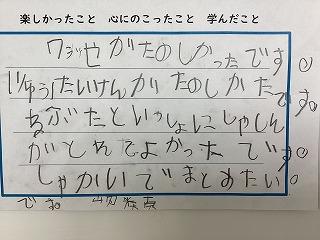 楽しかったこと　心にのこったこと　学んだこと
ワジッせがたのしかったです。
じゅうたいけんがたのしかたです。
るがたといっしょにしゃしん
がとれてよかったです。
しゃかいでまとめたい
です。